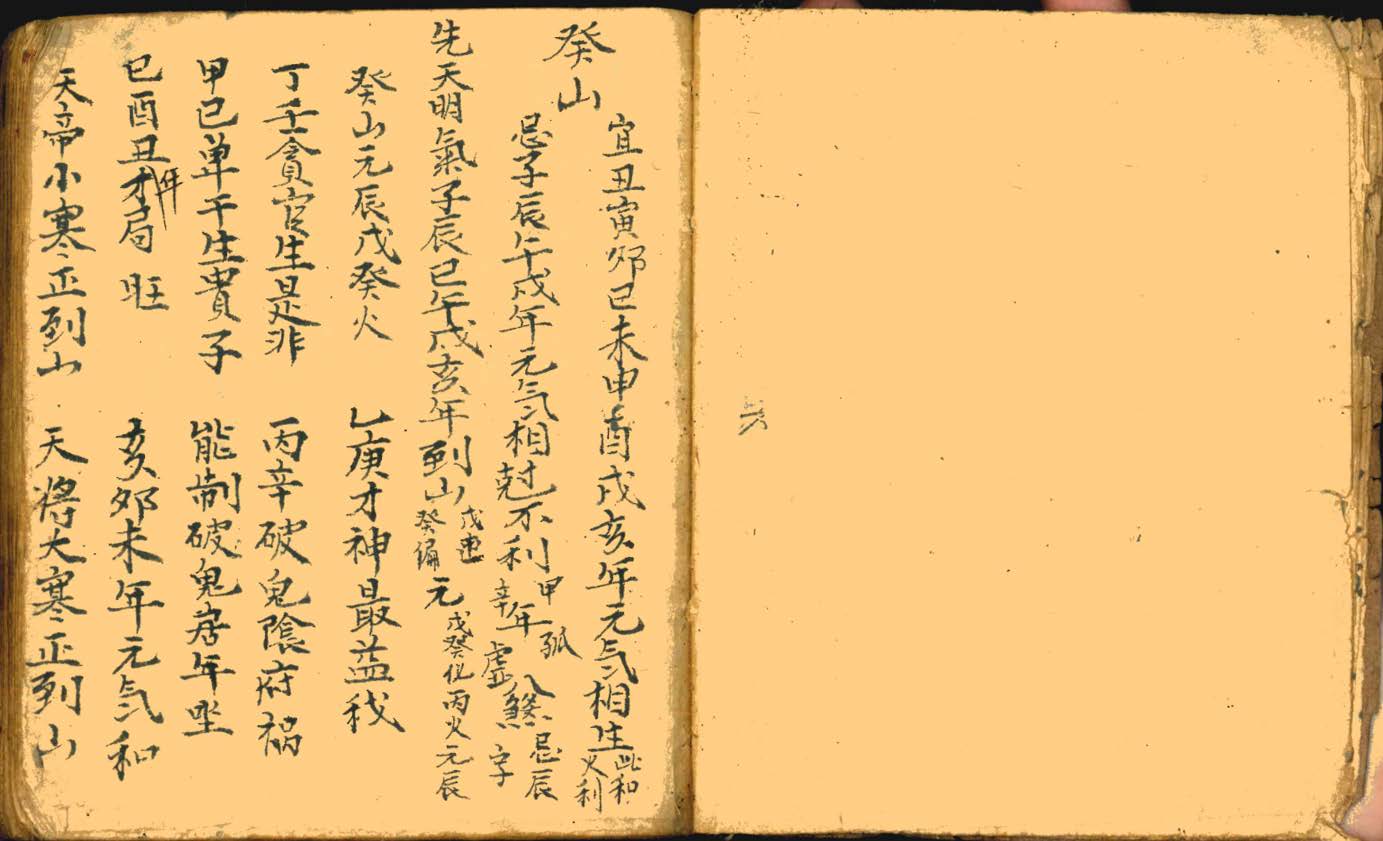 癸山
宜丑寅夘巳未申酉戌亥年元気相生比和大利
忌子辰午戌年元気相尅不利甲辛年孤虛八煞忌辰字
先天明氣子辰巳午戌亥年到山戊癸偏元戊癸化丙火元辰
癸山元辰戊癸火 乙庚才神最益我
丁壬貪官生是非 丙辛破鬼陰府禍
甲己单干生貴子 能制破鬼居年坐
巳酉丑年才局旺 亥夘未年元気和
天帝小寒正到山 天將大寒正到山